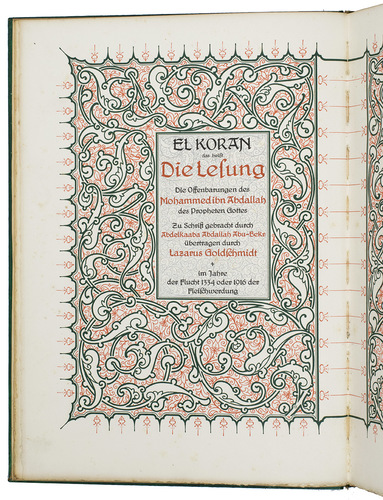 EL KORAN
das heißt
Die Lesung
Die Offenbarungen des
Mohammed ibn Abdallah
des Propheten Gottes
Zu Schrift gebracht durch
Abdelkaaba Abdallah Abu-Bekr
übertragen durch
Lazarus Goldschmidt
im Jahre
der Flucht 1334 oder 1916 der
Fleischwerdung